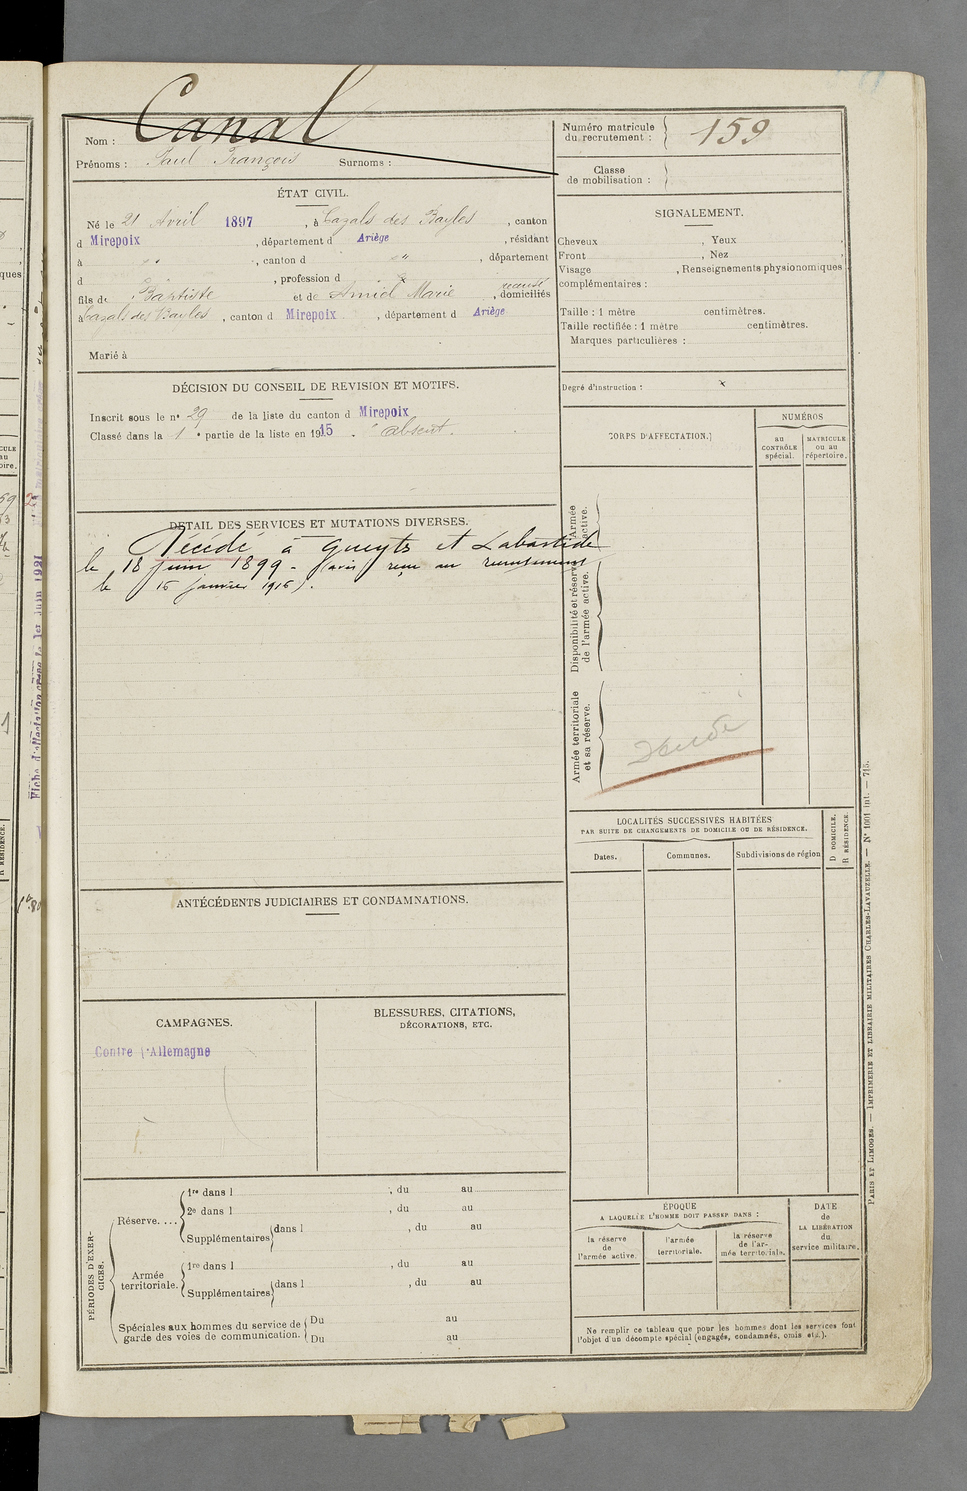 Canal
Nom :
Prénoms : Paul François Surnoms :
Numéro matricule
du recrutement : 159
Classe
de mobilisation :
ÉTAT CIVIL.
Né le 21 Avril 1897, à Cazals des Bayles, canton
d Mirepoix, département d Ariège, résidant
à " , canton d " , département
d , profession d
fils de Baptiste et de Amiel Marie , domiciliés
à Cazals des Bayles, canton d Mirepoix, département d Ariège
Marié à
SIGNALEMENT.
Cheveux , Yeux ,
Front , Nez ,
Visage , Renseignements physionomiques
complémentaires :
Taille : 1 mètre centimètres.
Taille rectifiée : 1 mètre centimètres.
Marques particulières :
Degré d'instruction :
DÉCISION DU CONSEIL DE REVISION ET MOTIFS.
Inscrit sous le n° 29 de la liste du canton d Mirepoix
Classé dans la 1e partie de la liste en 1915. "absent.
DÉTAIL DES SERVICES ET MUTATIONS DIVERSES.
Décédé à Gueyts et Labastide
le 18 juin 1899 - (avis reçu au recrutement
le 15 janvier 1915).
CORPS D'AFFECTATION.
NUMÉROS
au
CONTRÔLE
spécial.
MATRICULE
ou au
répertoire.
Armée
active.
Disponibilité et réserve
de l'armée active.
Armée territoriale
et sa réserve.
Décédé
LOCALITÉS SUCCESSIVES HABITÉES
PAR SUITE DE CHANGEMENTS DE DOMICILE OU DE RÉSIDENCE.
Dates.
Communes.
Subdivisions de région
D DOMICILE.
R RÉSIDENCE.
ANTÉCÉDENTS JUDICIAIRES ET CONDAMNATIONS.
CAMPAGNES.
Contre l'Allemagne
BLESSURES, CITATIONS,
DÉCORATIONS, ETC.
PÉRIODES D'EXER-
CICES.
Réserve....
1re dans l , du au
2e dans l , du au
Supplémentaires dans l , du au
Armée
territoriale.
1re dans l , du au
Supplémentaires dans l , du au
Spéciales aux hommes du service de
garde des voies de communication.
Du au
Du au
ÉPOQUE
A LAQUELLE L'HOMME DOIT PASSER DANS :
la réserve
de
l'armée active.
l'armée
territoriale.
la réserve
de l'ar-
mée territoriale.
DATE
de
LA LIBÉRATION
du
service militaire.
Ne remplir ce tableau que pour les hommes dont les services font
l'objet d'un décompte spécial (engagés, condamnés, omis etc.).
PARIS ET LIMOGES. — IMPRIMERIE ET LIBRAIRIE MILITAIRES CHARLES-LAVAUZELLE. — N° 1001 int. — 715.